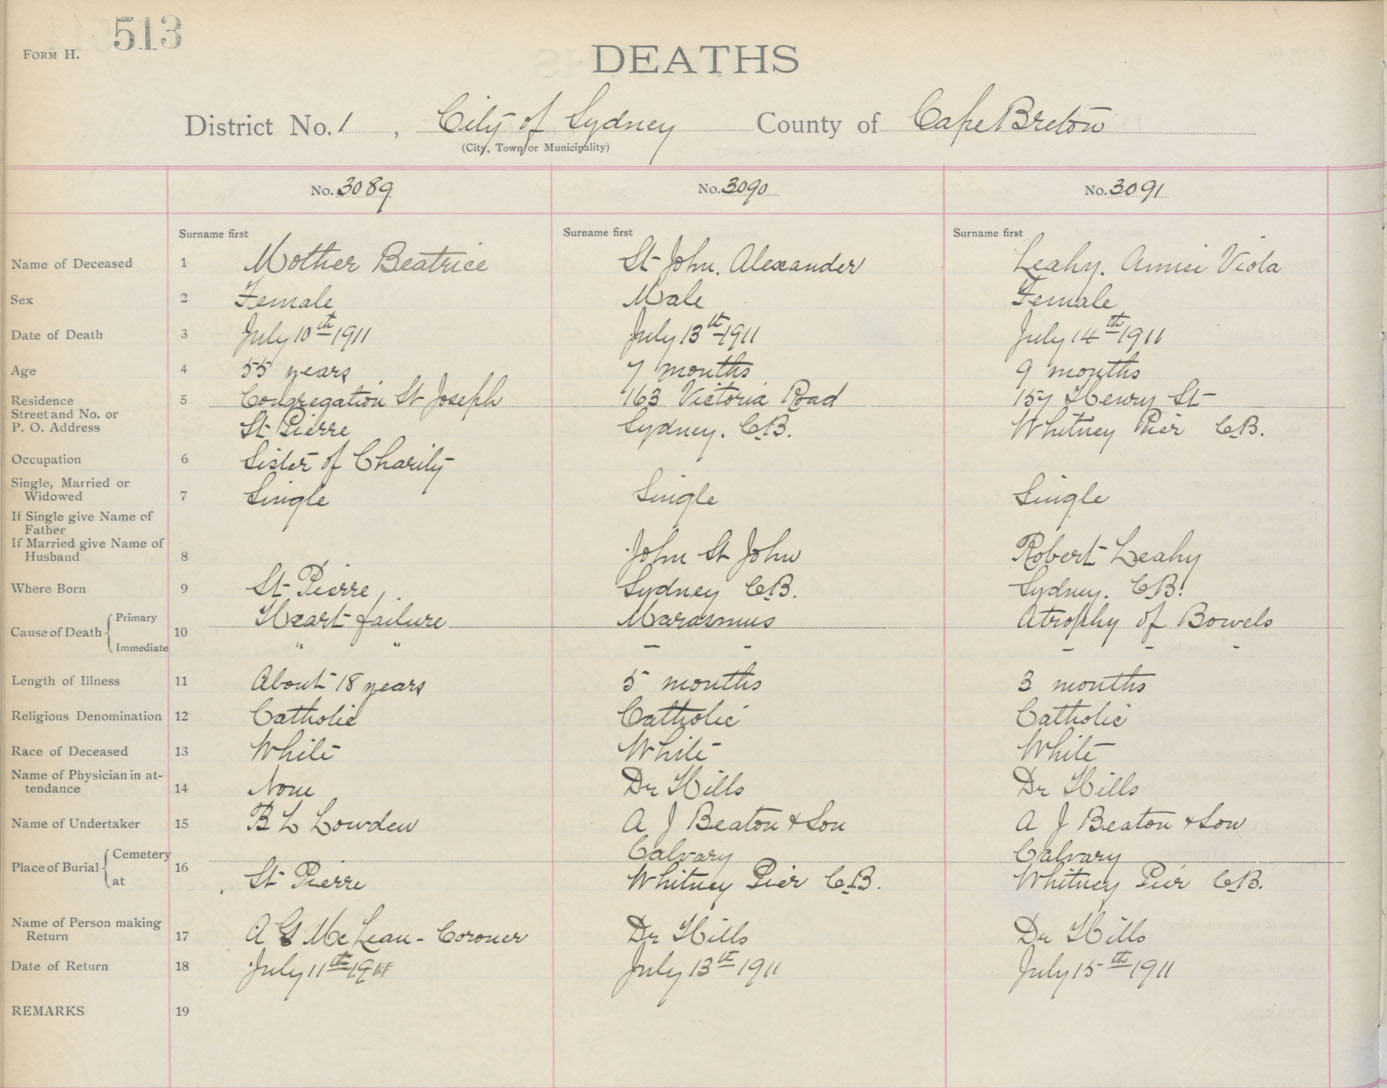 FORM H. 513
DEATHS
District No. 1 , City of Sydney County of Cape Breton
(City, Town or Municipality)
No. 3089 No. 3090 No. 3091
Surname first Surname first Surname first
Name of Deceased 1 Mother Beatrice St John. Alexander Leahy. Annie Viola
Sex 2 Female Male Female
Date of Death 3 July 10th 1911 July 13th 1911 July 14th 1911
Age 4 55 years 7 months 9 months
Residence 5 Congregation St Joseph 163 Victoria Road 157 Henry St
Street and No. or
P. O. Address St Pierre Sydney. C.B. Whitney Pier C.B.
Occupation 6 Sister of Charity
Single, Married or
Widowed 7 Single Single Single
If Single give Name of
Father
If Married give Name of
Husband 8 John St John Robert Leahy
Where Born 9 St Pierre Sydney C.B. Sydney. C.B.
Cause of Death { Primary 10 Heart failure Marasmus Atrophy of Bowels
Immediate " " – – – – –
Length of Illness 11 About 18 years 5 months 3 months
Religious Denomination 12 Catholic Catholic Catholic
Race of Deceased 13 White White White
Name of Physician in at-
tendance 14 None Dr Hills Dr Hills
Name of Undertaker 15 B L Lowden A J Beaton & Son A J Beaton & Son
Place of Burial { Cemetery 16 Calvary Calvary
at St Pierre Whitney Pier C.B. Whitney Pier C.B.
Name of Person making
Return 17 A G McLean - Coroner Dr Hills Dr Hills
Date of Return 18 July 11th 1911 July 13th 1911 July 15th 1911
REMARKS 19